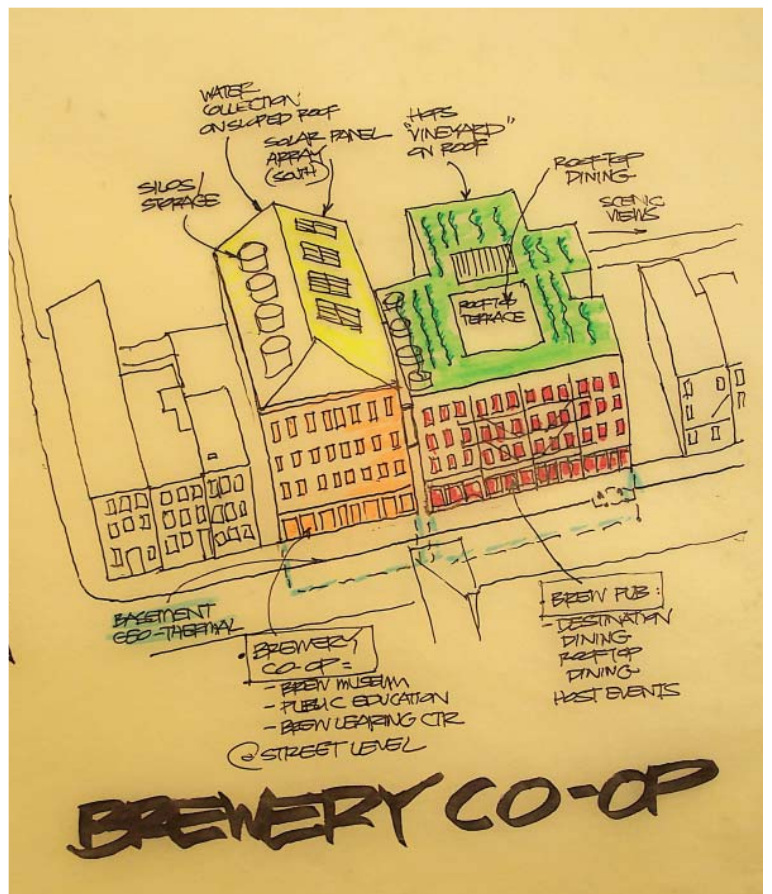 WATER
COLLECTION
ON SLOPED ROOF
SOLAR PANEL
ARRAY
(SOUTH)
SILOS/
STORAGE
HOPS
"VINEYARD"
ON ROOF
ROOFTOP
DINING
SCENIC
VIEWS
ROOFTOP
TERRACE
BASEMENT
GEO-THERMAL
• BREWERY
CO-OP =
- BREW MUSEUM
- PUBLIC EDUCATION
- BREW LEARING CTR
@ STREET LEVEL
• BREW PUB:
- DESTINATION
DINING
ROOFTOP
DINING
HOST EVENTS
BREWERY CO-OP